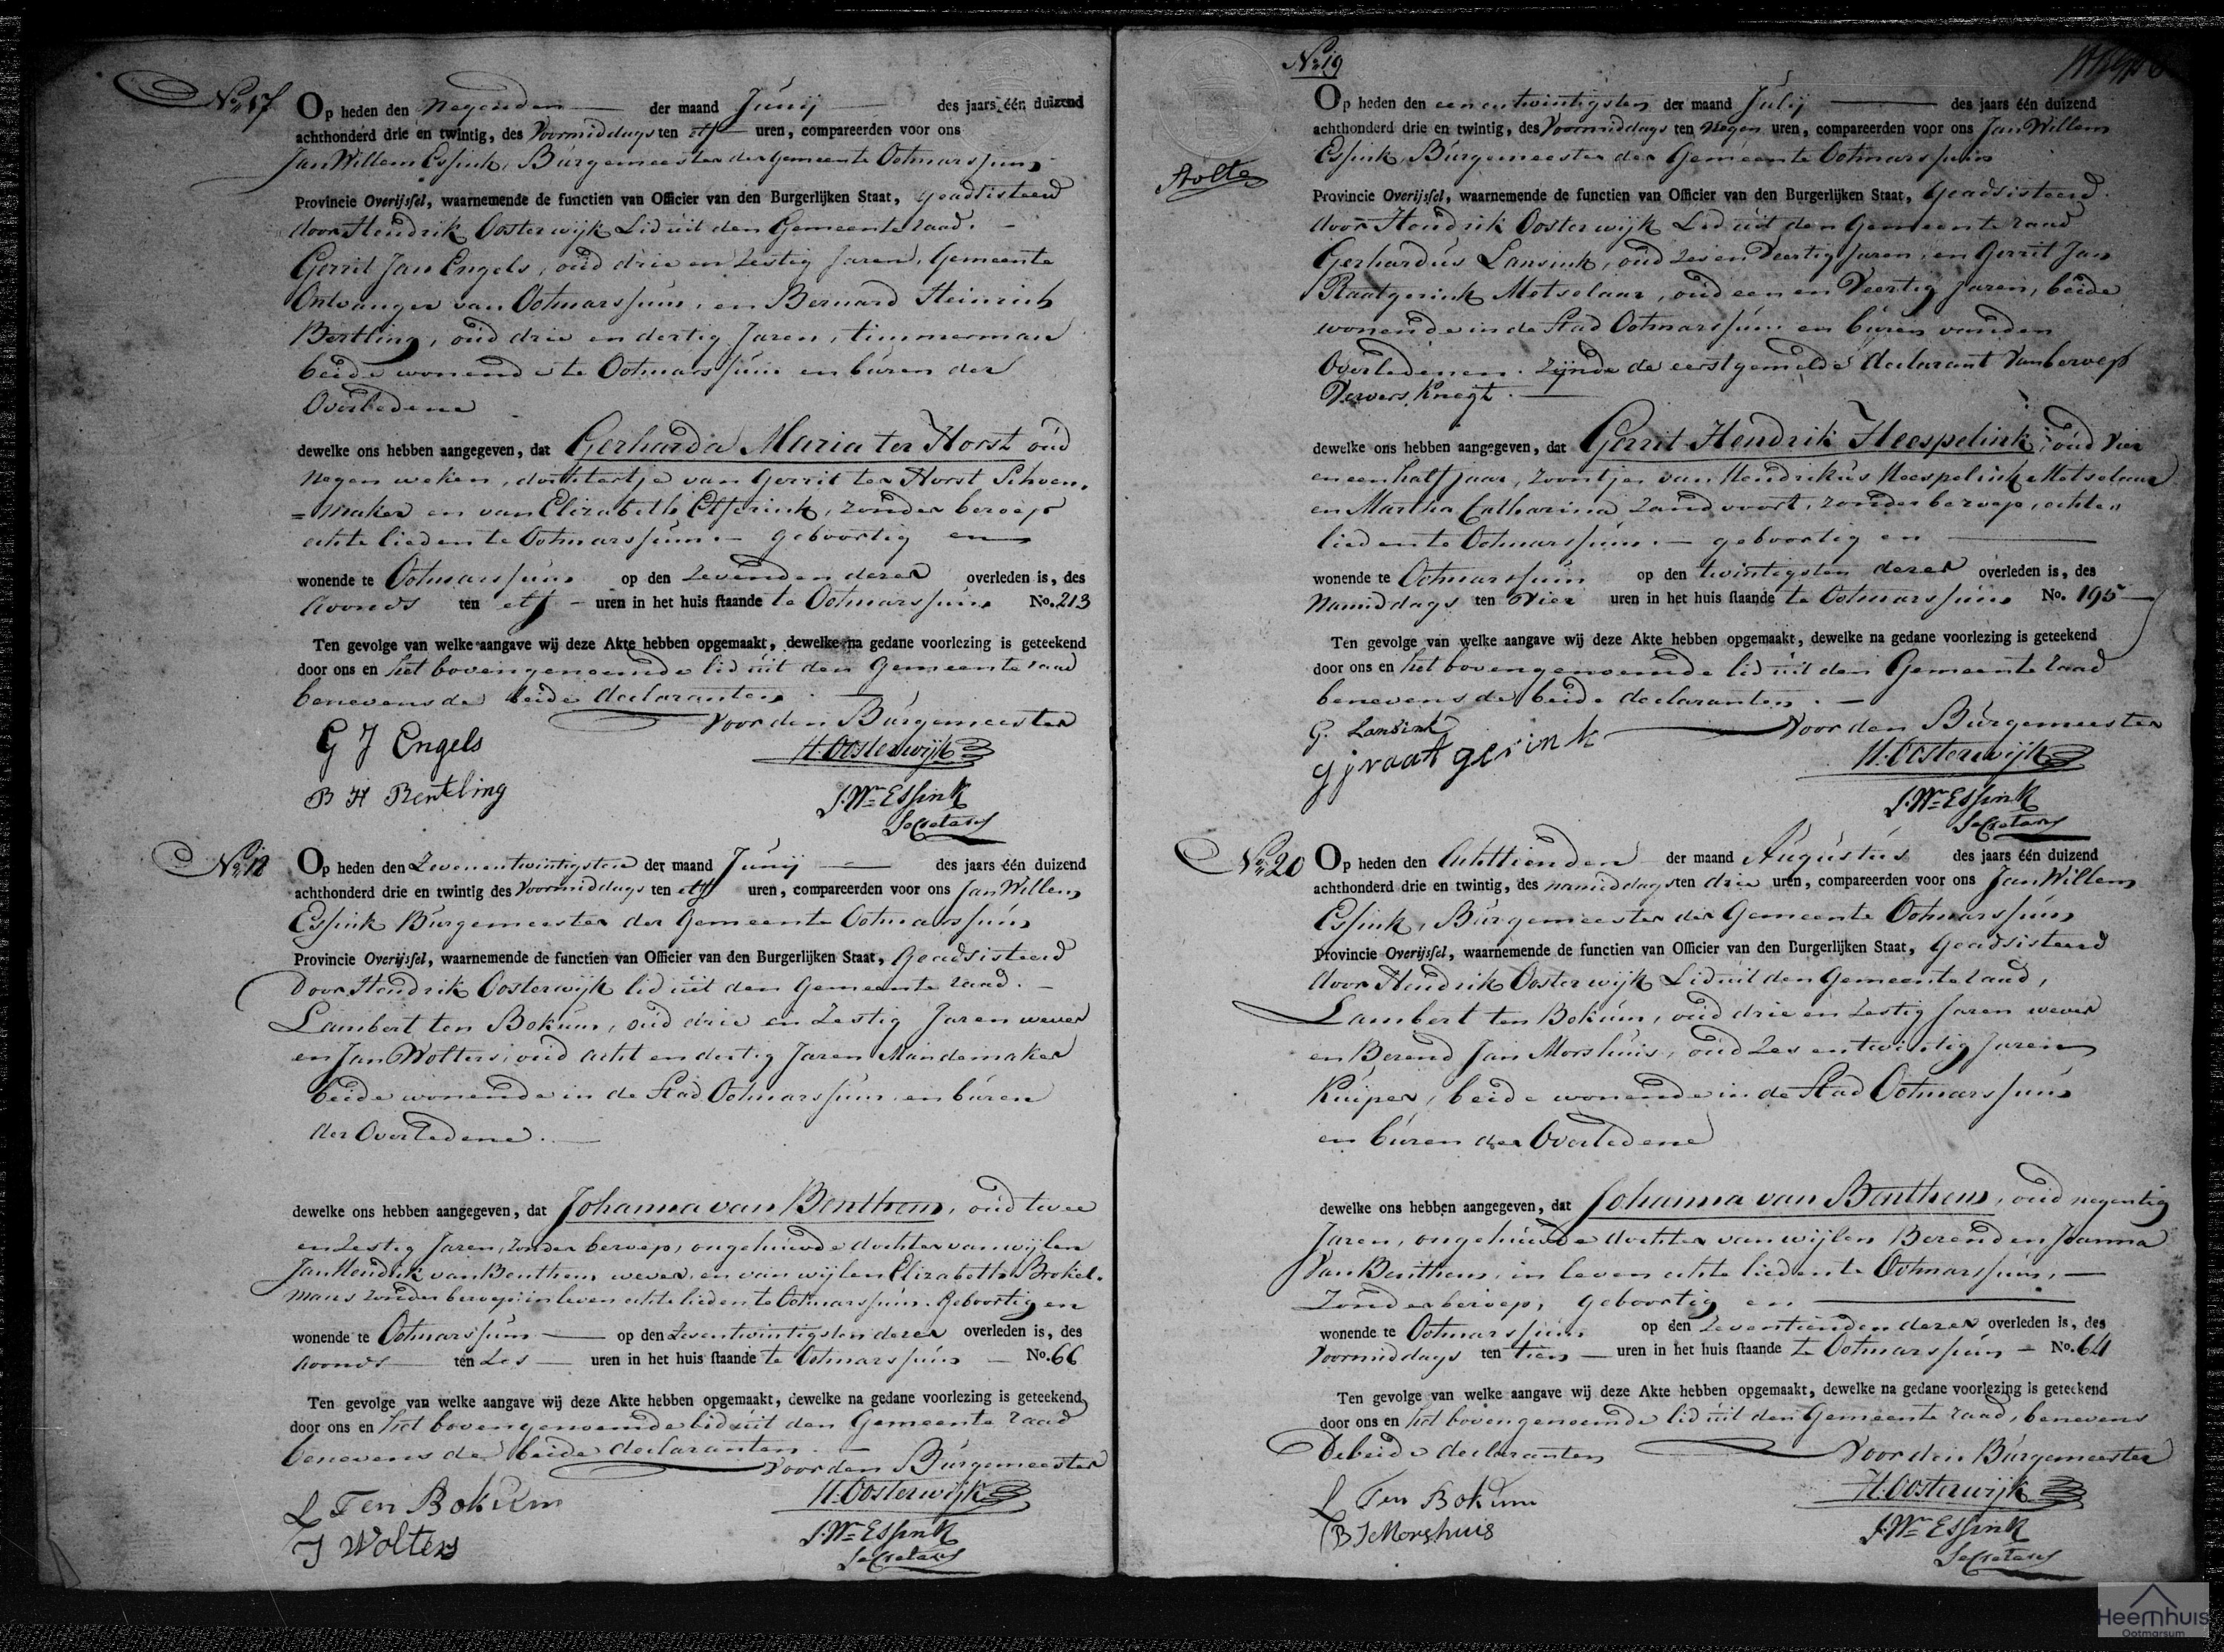 No. 17
Op heden den Negenden der maand Junij des jaars één duizend
achthonderd drie en twintig, des Voormiddags ten elf uren, compareerden voor ons
Jan Willem Essink, Burgemeester der Gemeente Ootmarssum,
Provincie Overijssel, waarnemende de functien van Officier van den Burgerlijken Staat, geadsisteerd
door Hendrik Oosterwijk Lid uit den Gemeente raad.
Gerrit Jan Engels, oud drie en Zestig Jaren, Gemeente
Ontvanger van Ootmarssum, en Bernard Heinrich
Bertling, oud drie en dertig Jaren, timmerman
beide wonende te Ootmarssum en buren der
Overledene
dewelke ons hebben aangegeven, dat Gerharda Maria ter Horst oud
Negen weken, dochtertje van Gerrit ter Horst Schoen,
=maker en van Elizabeth Elferink, zonder beroep
echte lieden te Ootmarssum. geboortig en
wonende te Ootmarssum op den Zevenden dezer overleden is, des
Avonds ten elf uren in het huis staande te Ootmarssum No. 213
Ten gevolge van welke aangave wij deze Akte hebben opgemaakt, dewelke na gedane voorlezing is geteekend
door ons en het bovengenoemde lid uit den Gemeente raad
benevens de beide declaranten.
Voor den Burgemeester
G J Engels
H. Oosterwijk
B H Bertling
J. Wm Essink
Secretaris
No. 18
Op heden den Zevenentwintigsten der maand Junij des jaars één duizend
achthonderd drie en twintig des Voormiddags ten elf uren, compareerden voor ons Jan Willem
Essink Burgemeester der Gemeente Ootmarssum
Provincie Overijssel, waarnemende de functien van Officier van den Burgerlijken Staat, Geadsisteerd
Door Hendrik Oosterwijk lid uit den Gemeente raad.
Lambert ten Bokum, oud drie en Zestig Jaren wever
en Jan Wolters, oud acht en dertig Jaren Mandemaker
beide wonende in de Stad Ootmarssum en buren
der Overledene.
dewelke ons hebben aangegeven, dat Johanna van Benthem, oud twee
en Zestig Jaren, zonder beroep, ongehuwde dochter van wijlen
Jan Hendrik van Benthem wever, en van wijlen Elizabeth Brokel-
mans zonder beroep in leven echte lieden te Ootmarssum. Geboortig en
wonende te Ootmarssum op den Zesentwintigsten dezer overleden is, des
Avonds ten Zes uren in het huis staande te Ootmarssum No. 66
Ten gevolge van welke aangave wij deze Akte hebben opgemaakt, dewelke na gedane voorlezing is geteekend
door ons en het bovengenoemde lid uit den Gemeente raad
benevens de beide declaranten.
Voor den Burgemeester
L Ten Bokum
H. Oosterwijk
J Wolters
J. Wm Essink
Secretaris
No. 19
Op heden den eenentwintigsten der maand Julij des jaars één duizend
achthonderd drie en twintig, des Voormiddags ten Negen uren, compareerden voor ons Jan Willem
Essink, Burgemeester der Gemeente Ootmarssum
Provincie Overijssel, waarnemende de functien van Officier van den Burgerlijken Staat, Geadsisteerd
door Hendrik Oosterwijk Lid uit den Gemeente raad
Gerhardus Lansink, oud Zes en Veertig Jaren, en Gerrit Jan
Raatgerink Metselaar, oud een en Veertig Jaren, beide
wonende in de Stad Ootmarssum en buren van den
Overledenen. Zijnde de eerstgemelde declarant van beroep
Ververs Knegt.
dewelke ons hebben aangegeven, dat Gerrit Hendrik Heespelink, oud Vier
en een half jaar, Zoontje van Hendrikus Heespelink Metselaar
en Martha Catharina Zandvoort, zonder beroep, echte
lieden te Ootmarssum. geboortig en
wonende te Ootmarssum op den twintigsten dezer overleden is, des
Namiddags ten Vier uren in het huis staande te Ootmarssum No. 195
Ten gevolge van welke aangave wij deze Akte hebben opgemaakt, dewelke na gedane voorlezing is geteekend
door ons en het bovengenoemde lid uit den Gemeente raad
benevens de beide declaranten.
Voor den Burgemeester
G. Lansink
gj raatgerink
H. Oosterwijk
J. Wm Essink
Secretaris
No. 20
Op heden den Achttienden der maand Augustus des jaars één duizend
achthonderd drie en twintig, des namiddags ten drie uren, compareerden voor ons Jan Willem
Essink, Burgemeester der Gemeente Ootmarssum
Provincie Overijssel, waarnemende de functien van Officier van den Burgerlijken Staat, Geadsisteerd
door Hendrik Oosterwijk Lid uit den Gemeente raad,
Lambert ten Bokum, oud drie en Zestig Jaren wever
en Berend Jan Morshuis, oud Zes en twintig Jaren
Kuiper, beide wonende in de Stad Ootmarssum
en buren der Overledene
dewelke ons hebben aangegeven, dat Johanna van Benthem, oud negentig
Jaren, ongehuwde dochter van wijlen Berend en Joanna
Van Benthem, in leven echte lieden te Ootmarssum,
Zonder beroep, geboortig en
wonende te Ootmarssum op den Zeventienden dezer overleden is, des
Voormiddags ten tien uren in het huis staande te Ootmarssum No. 64
Ten gevolge van welke aangave wij deze Akte hebben opgemaakt, dewelke na gedane voorlezing is geteekend
door ons en het bovengenoemde lid uit den Gemeente raad, benevens
De beide declaranten
Voor den Burgemeester
L Ten Bokum
H. Oosterwijk
B J Morshuis
J. Wm Essink
Secretaris
Heemhuis
Ootmarsum